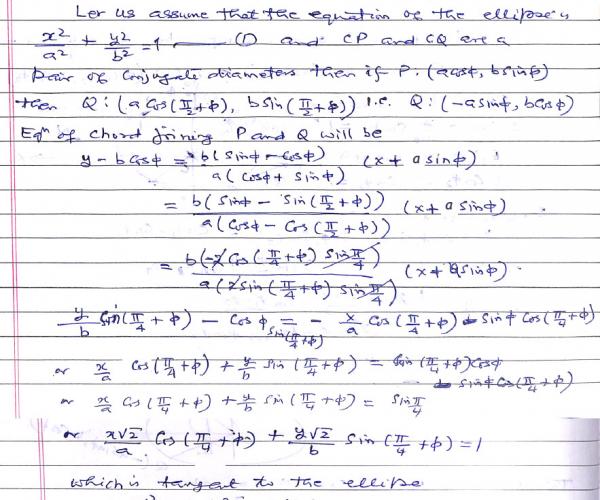 Let us assume that the equation of the ellipse is
x²/a² + y²/b² = 1 —— (1) and CP and CQ are a
pair of conjugate diameters then if P: (a cosφ, b sinφ)
then Q: (a cos(π/2+φ), b sin(π/2+φ)) i.e. Q: (-a sinφ, b cosφ)
Eqⁿ of chord joining P and Q will be
y - b cosφ = b(sinφ - cosφ) / a(cosφ + sinφ) (x + a sinφ)
= b(sinφ - sin(π/2+φ)) / a(cosφ - cos(π/2+φ)) (x + a sinφ)
= b(-2 cos(π/4+φ) sin π/4) / a(2 sin(π/4+φ) sin π/4) (x + a sinφ).
y/b sin(π/4+φ) - cosφ sin(π/4+φ) = - x/a cos(π/4+φ) - sinφ cos(π/4+φ)
or x/a cos(π/4+φ) + y/b sin(π/4+φ) = sin(π/4+φ) cosφ - sinφ cos(π/4+φ)
or x/a cos(π/4+φ) + y/b sin(π/4+φ) = sin π/4
or x√2/a cos(π/4+φ) + y√2/b sin(π/4+φ) = 1
which is tangent to the ellipse